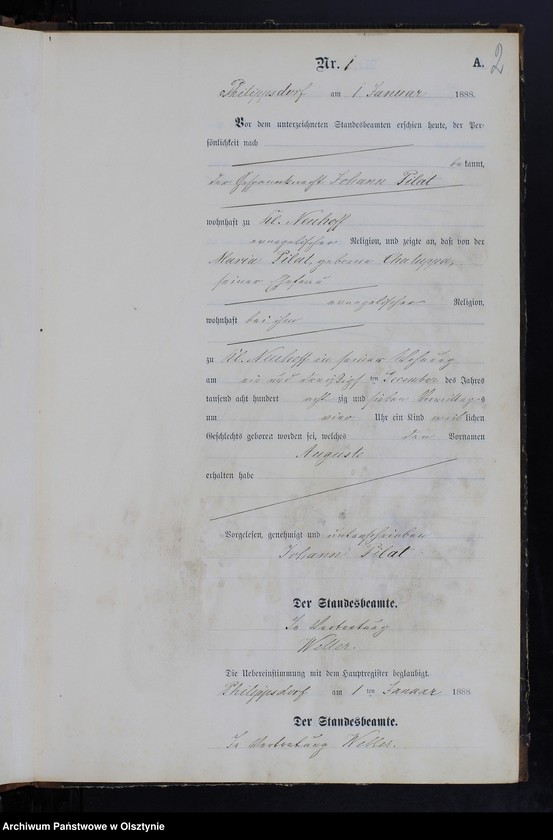 2
Nr. 1 A.
Philippsdorf am 1. Januar 1888.
Vor dem unterzeichneten Standesbeamten erschien heute, der Per-
sönlichkeit nach
bekannt,
der Johann Pilat
wohnhaft zu Kl. Neuhoff
evangelischer Religion, und zeigte an, daß von der
Maria Pilat, geborne Chaluppa,
seiner Ehefrau
evangelischer Religion,
wohnhaft bei ihm
zu Kl. Neuhoff in seiner Wohnung
am ein und dreißigsten Dezember des Jahres
tausend acht hundert acht zig und sieben Vormittags
um vier Uhr ein Kind weiblichen
Geschlechts geboren worden sei, welches den Vornamen
Auguste
erhalten habe
Vorgelesen, genehmigt und unterschrieben
Johann Pilat
Der Standesbeamte.
In Vertretung
Weller.
Die Uebereinstimmung mit dem Hauptregister beglaubigt.
Philippsdorf am 1 ten Januar 1888
Der Standesbeamte.
In Vertretung Weller.
Archiwum Państwowe w Olsztynie